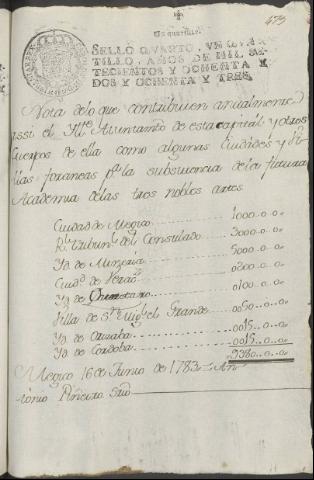 Un quartillo.
473
SELLO QVARTO, VN QVAR
TILLO, AÑOS DE MIL SE-
TECIENTOS Y OCHENTA Y
DOS Y OCHENTA Y TRES.
Nota de lo que contribuien anualmente
assi el Yltre Aiuntamto de esta capital y otros
Cuerpos de ella como algunas Ciudades y Vi-
llas foraneas pa la subsistencia de la futura
Academia de las tres nobles artes
Ciudad de Megico 1000..0..0..
Rl tribunl del Consulado 3000..0..0..
Yd de Mineria 5000..0..0..
Ciudd de Veracz 0200..0..0..
Yd de Queretaro 0100..0..0..
Villa de Sn Migl el Grande 0050..0..0..
Yd de Orizaba 0015..0..0..
Yd de Cordoba 0015..0..0..
9380..0..0..
Megico 16 de Junio de 1783. An
tonio Piñeiro Srio